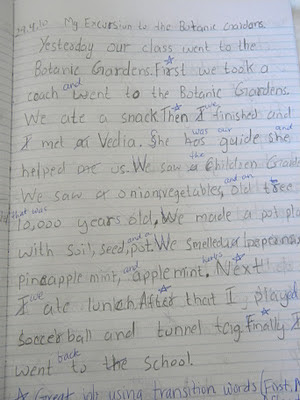 29.9.10 My Excursion to the Botanic Gardens.
Yesterday our class went to the
Botanic Gardens. First we took a
coach and went to the Botanic Gardens.
We ate a snack Then I we finished and
I met at Vedia. She was our has guide she
helped are us. We saw a the Children Garde
We saw a onion, vegetables, and an old tree
that was 10,000 years old, We made a pot pla
with soil, seed, and pot. We smelled
pineapple mint, and apple mint. herbs Next
I we ate lunch After that I played
soccer ball and tunnel taig Finally I
went back to the school.
Great job using transition words (First, N